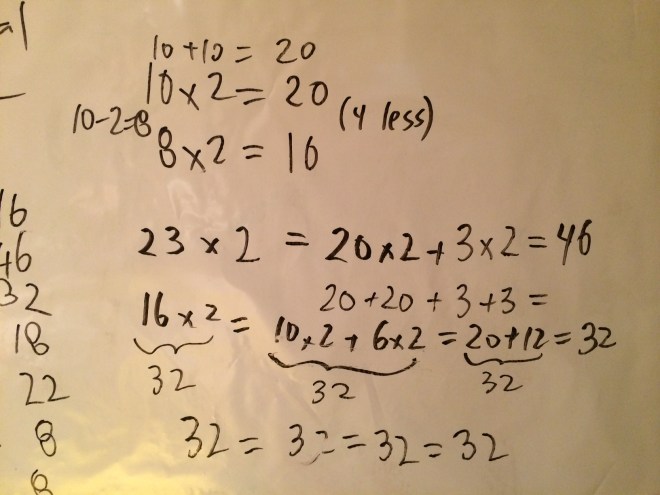 al
10+10 = 20
10×2 = 20
(4 less)
10-2=8
8×2 = 16
16
46
32
18
22
8
8
23 × 2 = 20×2+3×2=46
20+20 + 3+3 =
16×2 = 10×2+6×2 = 20+12 = 32
32 32 32
32 = 32 = 32 = 32